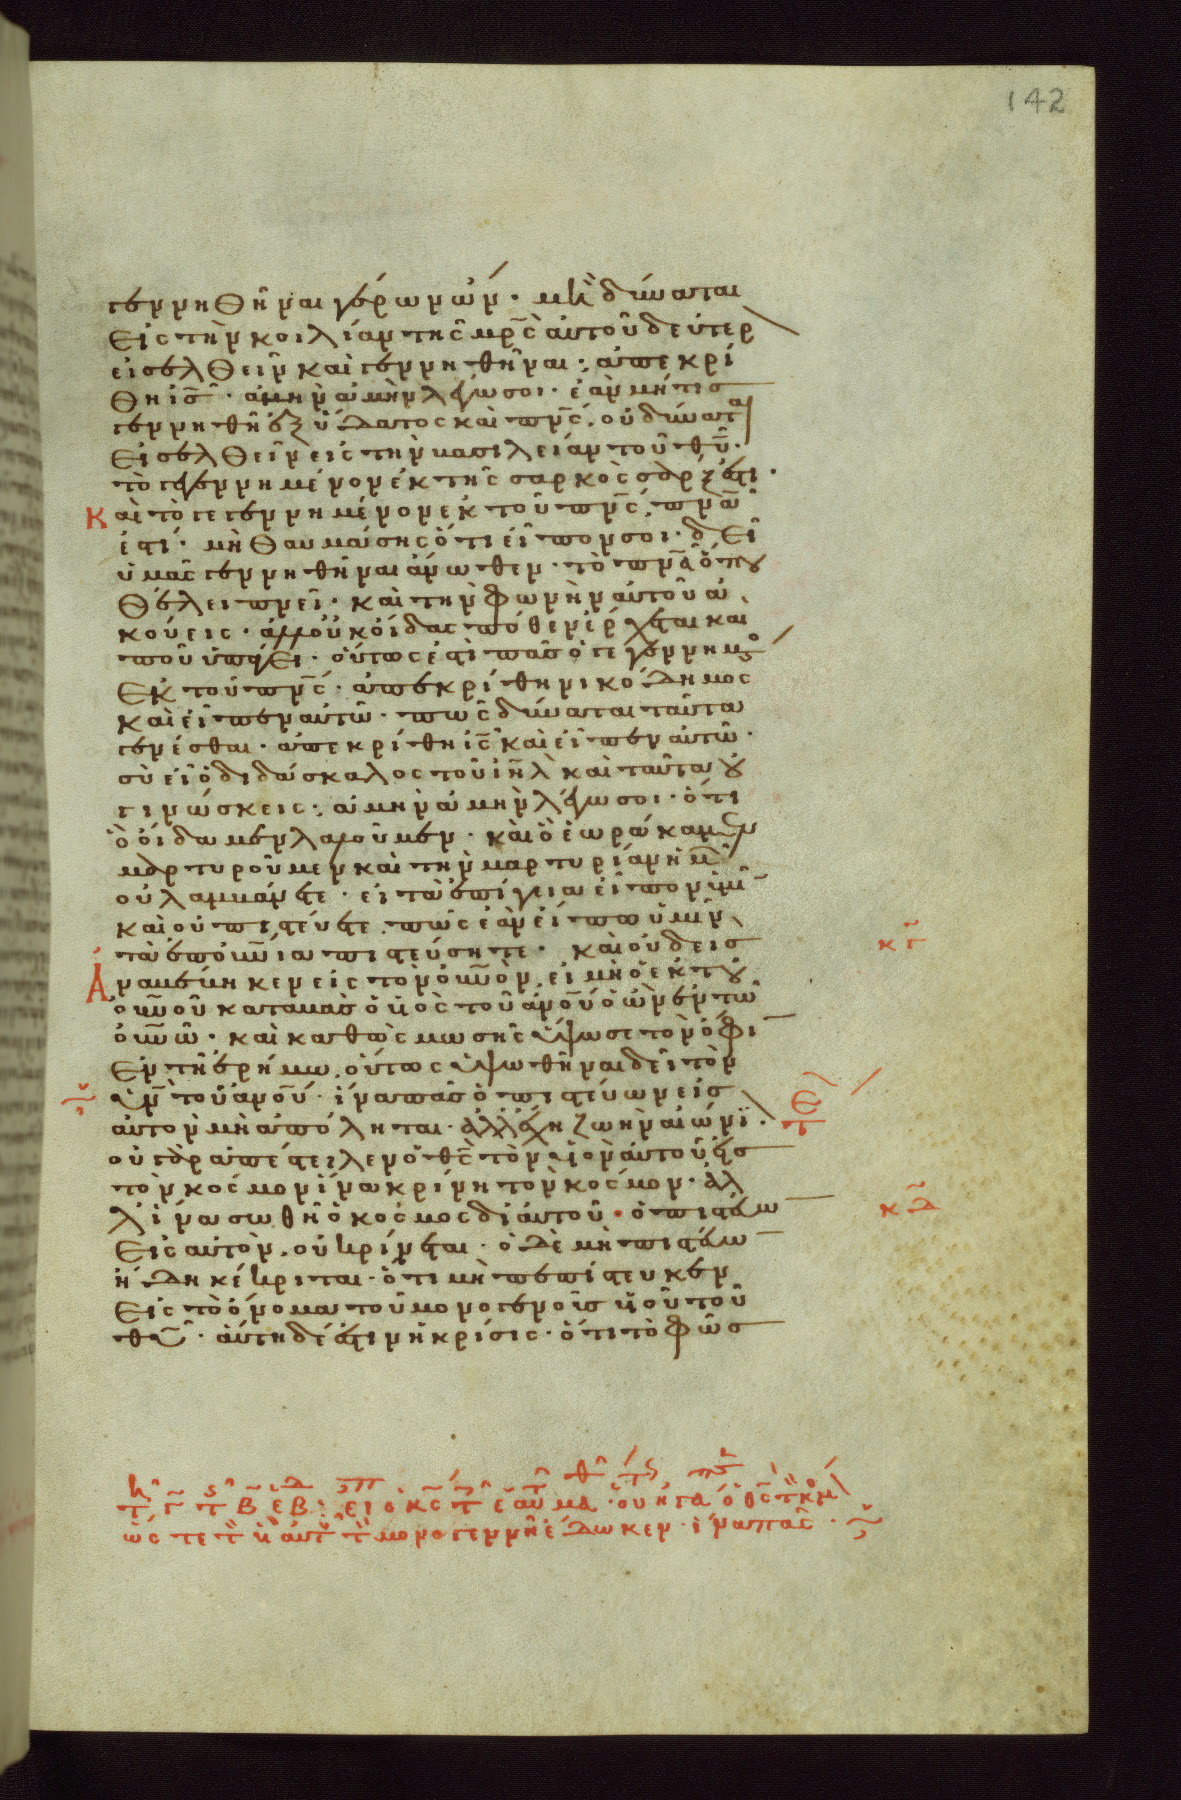 142
γεννηθῆναι γέρων ὤν· μὴ δύναται
εἰς τὴν κοιλίαν τῆς μρ̅ς αὐτοῦ δεύτερ
εἰσελθεῖν καὶ γεννηθῆναι; ἀπεκρί
θη ἰς̅· ἀμὴν ἀμὴν λέγω σοι· ἐὰν μή τις
γεννηθῆ ἐξ ὕδατος καὶ πν̅ς, οὐ δύναται
εἰσελθεῖν εἰς τὴν βασιλείαν τοῦ θῦ̅·
τὸ γεγεννημένον ἐκ τῆς σαρκὸς σάρξ ἐστι·
καὶ τὸ γεγεννημένον ἐκ τοῦ πν̅ς, πν̅ά
ἐστί· μὴ θαυμάσης ὅτι εἶπον σοι· δεῖ
ὑμᾶς γεννηθῆναι ἄνωθεν· τὸ πν̅α ὅπου
θέλει πνεῖ· καὶ τὴν φωνὴν αὐτοῦ ἀ
κούεις· ἀλλ' οὐκ οἶδας πόθεν ἔρχεται καὶ
ποῦ ὑπάγει· οὕτως ἐστὶ πᾶς ὁ γεγεννημνο
ἐκ τοῦ πν̅ς· ἀπεκρίθη νικόδημος
καὶ εἶπεν αὐτῶ· πῶς δύναται ταῦτα
γενέσθαι· ἀπεκρίθη ἰς̅ καὶ εἶπεν αὐτῶ·
σὺ εἶ ὁ διδάσκαλος τοῦ ἰη̅λ καὶ ταῦτα οὐ
γινώσκεις; ἀμὴν ἀμὴν λέγω σοι· ὅτι
ὃ οἴδαμεν λαλοῦμεν· καὶ ὃ ἑωράκαμεν
μαρτυροῦμεν καὶ τὴν μαρτυρίαν ἡμῶ
οὐ λαμβάνετε· εἰ τὰ ἐπίγεια εἶπον ὑμῖ
καὶ οὐ πιστεύετε, πῶς ἐὰν εἴπω ὑμῖν
τὰ ἐπουν̅ια πιστεύσητε· καὶ οὐδεὶς
ἀναβέβηκεν εἰς τὸν οὐν̅ον, εἰ μὴ ὁ ἐκ του
οὐν̅οῦ καταβὰς ὁ υἱὸς τοῦ ἀνο̅υ ὁ ὢν ἐν τῶ
οὐν̅ῶ· καὶ καθὼς μωσῆς ὕψωσε τὸν ὄφι
ἐν τῆ ἐρήμω, οὕτως ὑψωθῆναι δεῖ τὸν
υν̅ τοῦ ἀνο̅υ· ἵνα πᾶς ὁ πιστεύων εἰς
αὐτὸν μὴ ἀπόληται· ἀλλ' ἔχη ζωὴν αἰώνι·
οὐ γὰρ ἀπέστειλεν ὁ θς̅ τὸν υἱὸν αὐτοῦ εἰς
τὸν κόσμον ἵνα κρίνη τὸν κόσμον· ἀλ
λ' ἵνα σωθῆ ὁ κόσμος δι' αὐτοῦ· ὁ πιστεύω
εἰς αὐτὸν, οὐ κρίνεται· ὁ δὲ μὴ πιστεύω
ἤδη κέκριται· ὅτι μὴ πεπίστευκεν
εἰς τὸ ὄνομα τοῦ μονογενοῦς υἱοῦ τοῦ
θῦ̅· αὕτη δέ ἐστιν ἡ κρίσις· ὅτι τὸ φῶς
κγ̅
κδ̅
ὥστε τ υἱ αὐτ τ μονογεννῆ ἔδωκεν· ἵνα πᾶς·